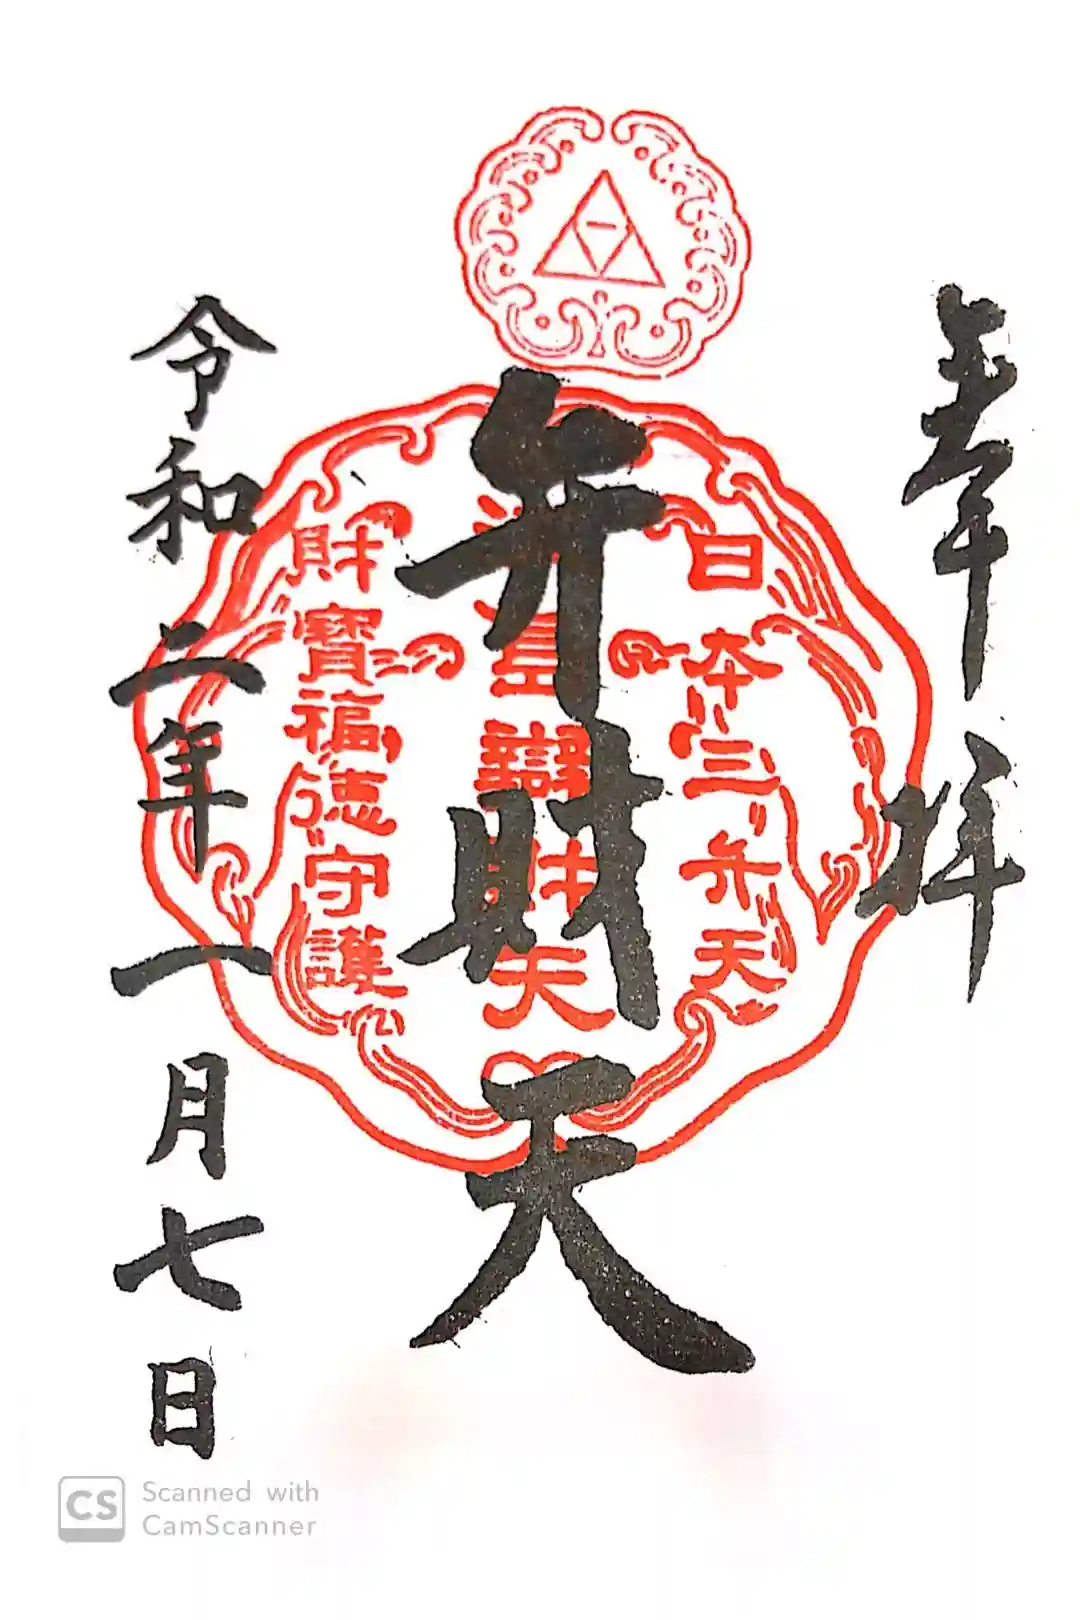 奉拝
日本三弁天
弁財天
財寶福徳守護
令和二年一月七日
CS Scanned with
CamScanner